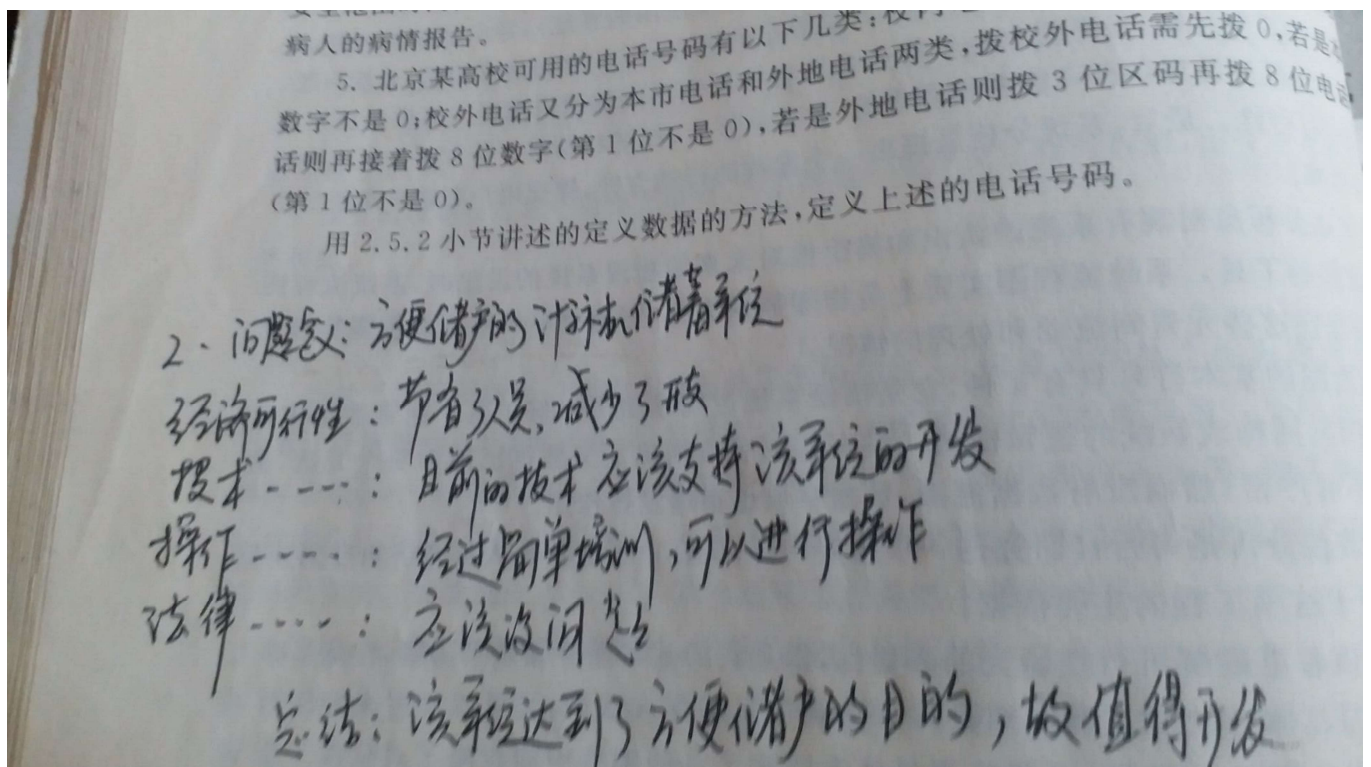 病人的病情报告。
5. 北京某高校可用的电话号码有以下几类:校内
数字不是 0;校外电话又分为本市电话和外地电话两类,拨校外电话需先拨 0,若是
话则再接着拨 8 位数字(第 1 位不是 0),若是外地电话则拨 3 位区码再拨 8 位电话
(第 1 位不是 0)。
用 2.5.2 小节讲述的定义数据的方法,定义上述的电话号码。
2. 问题定义: 方便储户的计算机储蓄系统
经济可行性: 节省人员,减少了开支
技术----: 目前的技术应该支持该系统的开发
操作----: 经过简单培训,可以进行操作
法律----: 应该没问题
总结: 该系统达到了方便储户的目的,故值得开发